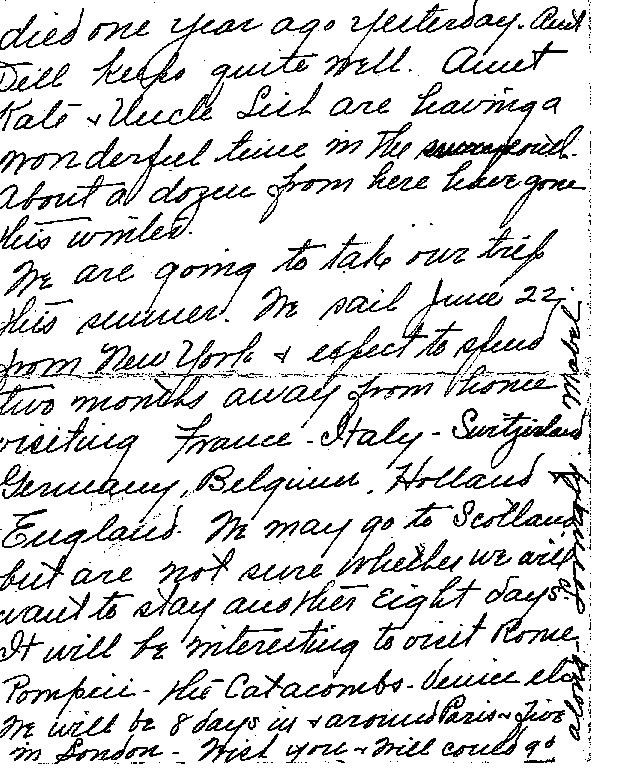 died one year ago yesterday. Aunt
Dell keeps quite well. Aunt
Kate & Uncle are having a
wonderful time in the
About a dozen from here have gone
this winter.
We are going to take our trip
this summer. We sail June 22
from New York & expect to spend
two months away from home
visiting France - Italy - Switzerland
Germany, Belgium, Holland
England. We may go to Scotland
but are not sure whether we will
want to stay another Eight days
It will be interesting to visit Rome
Pompeii - the Catacombs - Venice etc
We will be 8 days in & around Paris & five
in London - Wish you & Will could go
along - Lovingly Mabel